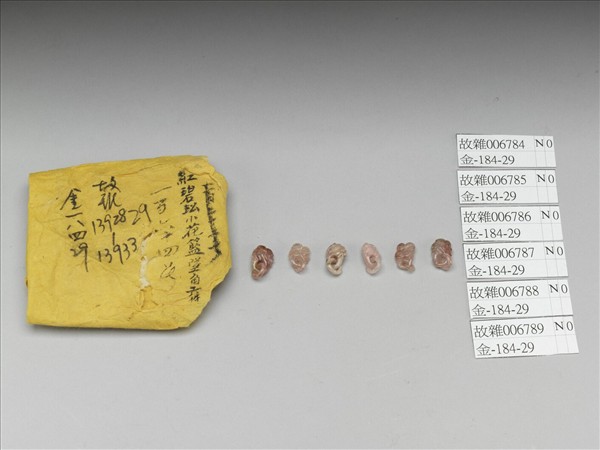 紅碧玹小花籃
一百八十四次
故雜
13928
29
13933
金一八四29
故雜006784 N 0
金-184-29
故雜006785 N 0
金-184-29
故雜006786 N 0
金-184-29
故雜006787 N 0
金-184-29
故雜006788 N 0
金-184-29
故雜006789 N 0
金-184-29